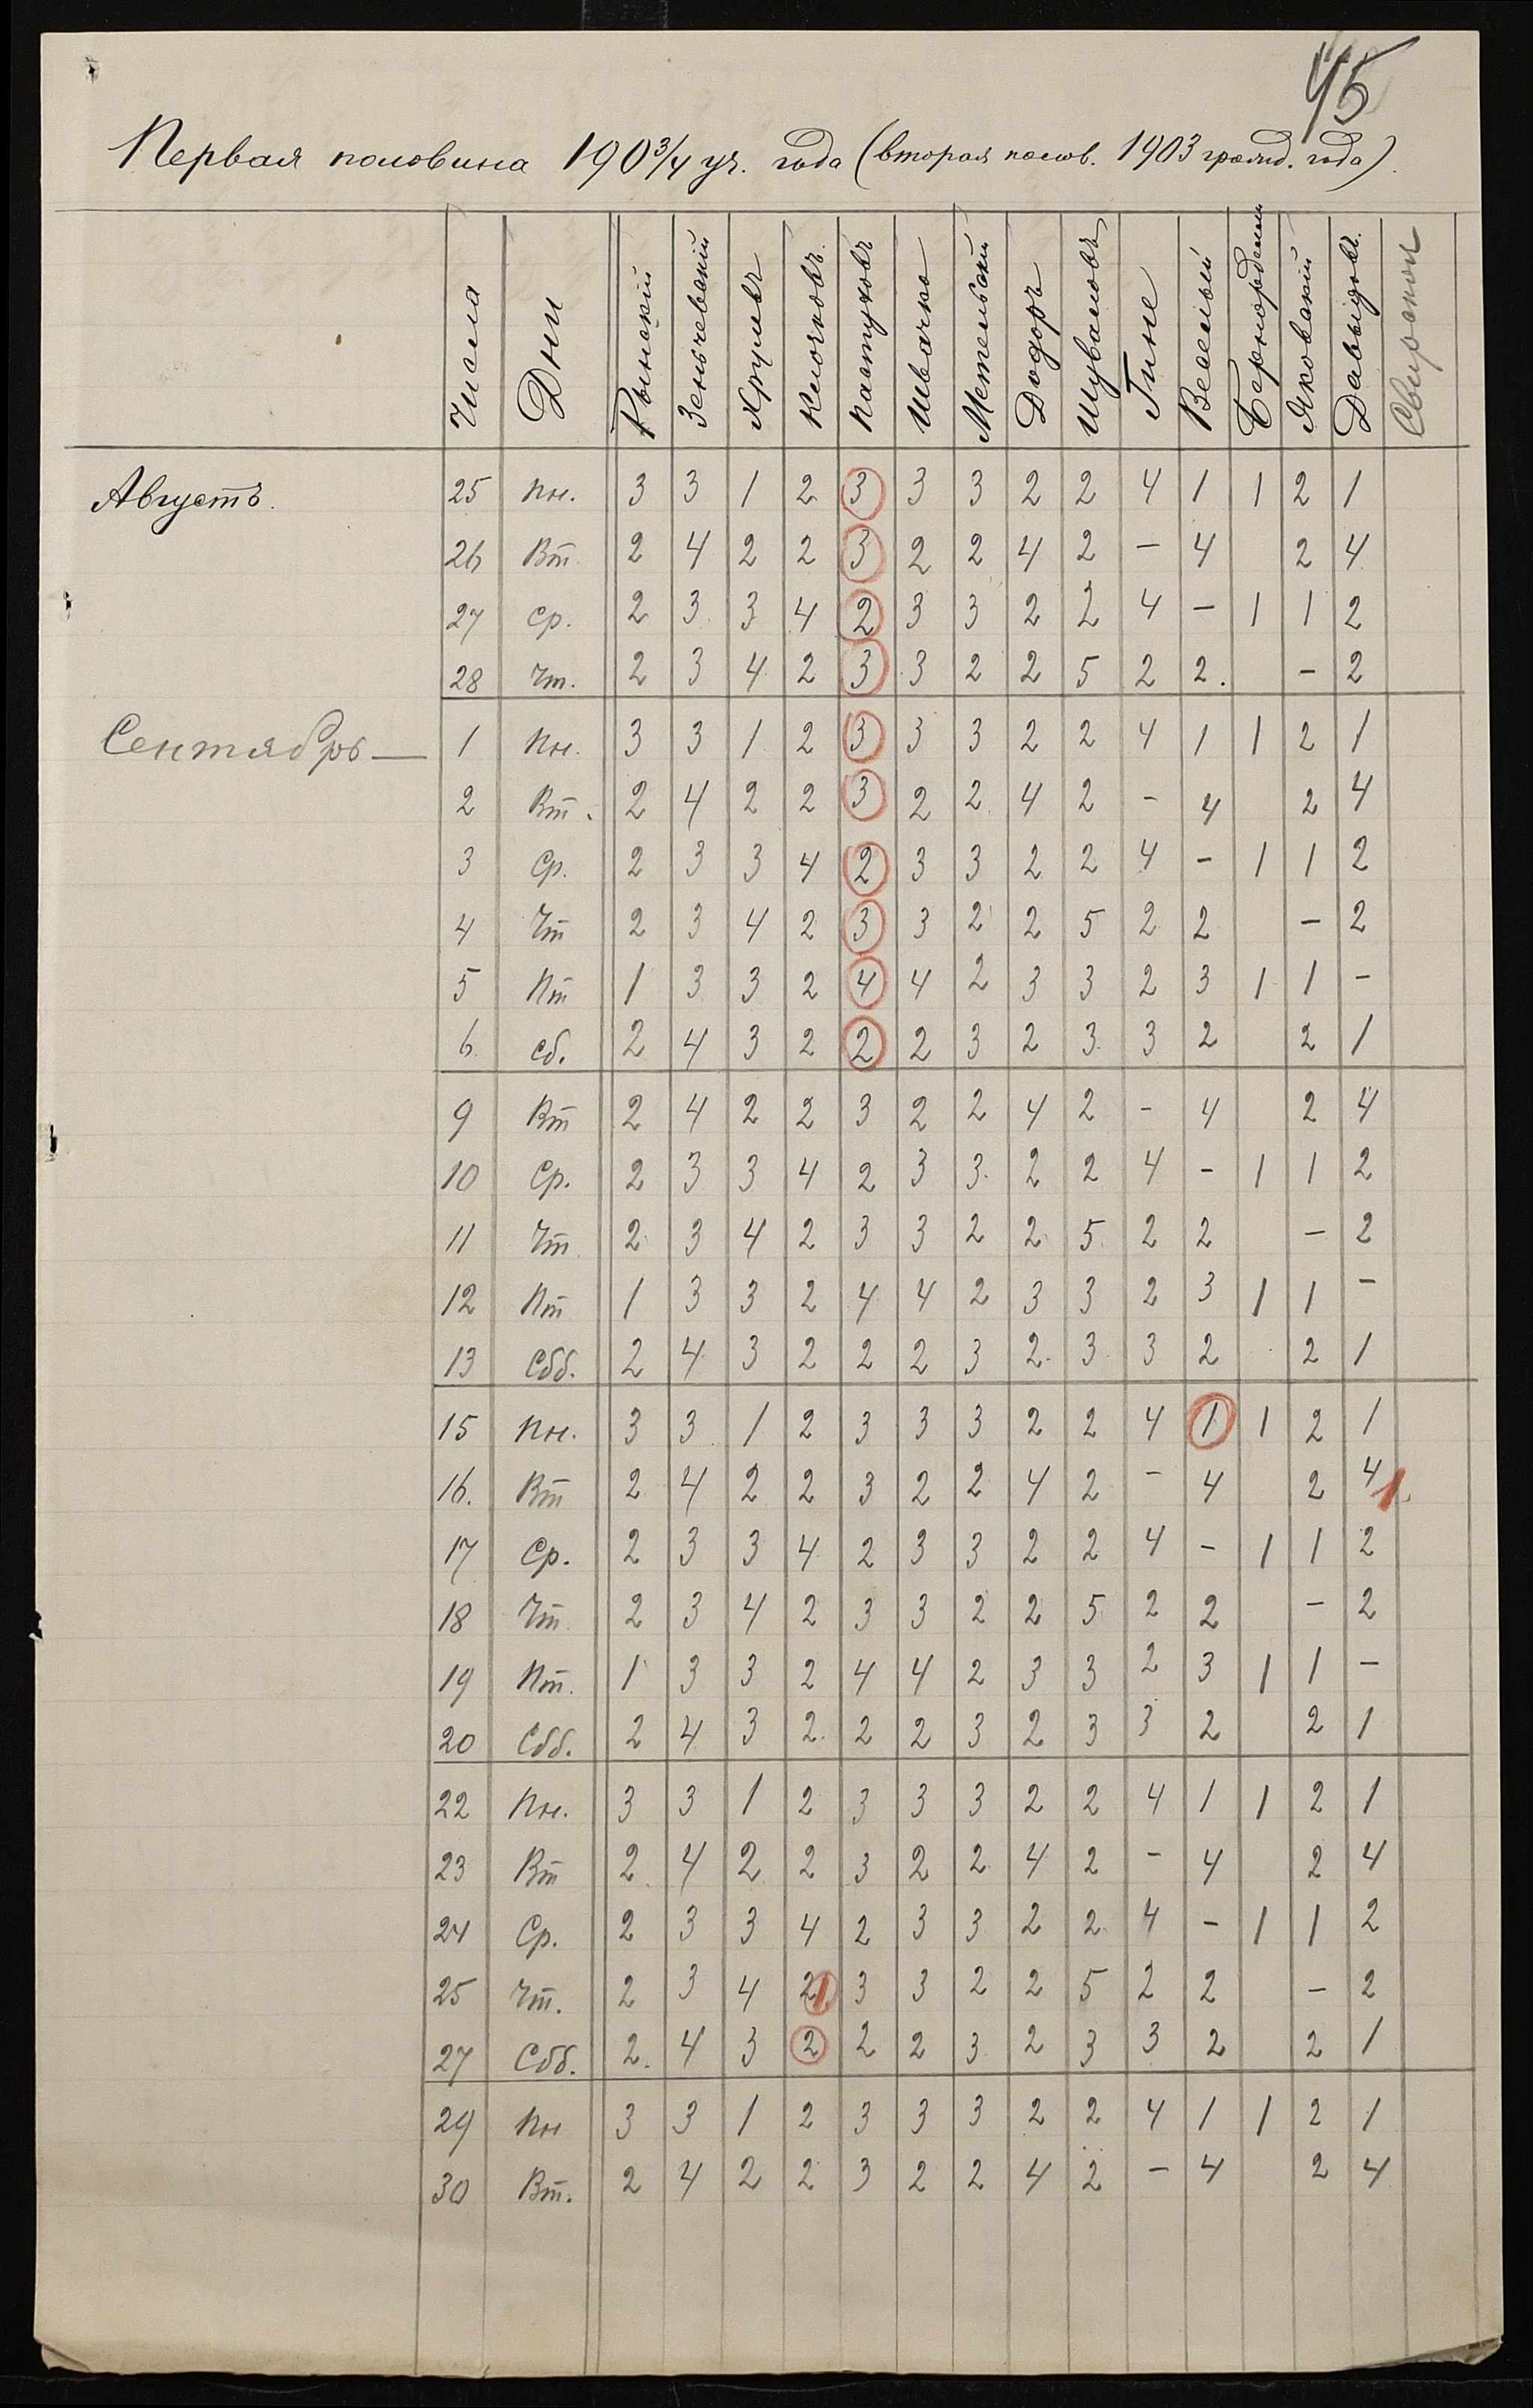 45
Первая половина 1903/4 уч. года (вторая полов. 1903 гражд. года).
Числа Дни Рынскій Зеньчевскій Хрулевъ Клочковъ Пастуховъ Швачко Метельскій Додоръ Шуваловъ Гине Веселый Яковскій Давыдовъ. Свирскій
Августъ. 25 Пн. 3 3 1 2 3 3 3 2 2 4 1 1 2 1
26 Вт. 2 4 2 2 3 2 2 4 2 — 4 2 4
27 Ср. 2 3 3 4 2 3 3 2 2 4 — 1 1 2
28 Чт. 2 3 4 2 3 3 2 2 5 2 2. — 2
Сентябрь — 1 Пн. 3 3 1 2 3 3 3 2 2 4 1 1 2 1
2 Вт. 2 4 2 2 3 2 2 4 2 — 4 2 4
3 Ср. 2 3 3 4 2 3 3 2 2 4 — 1 1 2
4 Чт 2 3 4 2 3 3 2 2 5 2 2 — 2
5 Пт 1 3 3 2 4 4 2 3 3 2 3 1 1 —
6. Сб. 2 4 3 2 2 2 3 2 3 3 2 2 1
9 Вт 2 4 2 2 3 2 2 4 2 — 4 2 4
10 Ср. 2 3 3 4 2 3 3 2 2 4 — 1 1 2
11 Чт 2 3 4 2 3 3 2 2 5 2 2 — 2
12 Пт 1 3 3 2 4 4 2 3 3 2 3 1 1 —
13 Сбб. 2 4 3 2 2 2 3 2 3 3 2 2 1
15 Пн. 3 3 1 2 3 3 3 2 2 4 1 1 2 1
16. Вт 2 4 2 2 3 2 2 4 2 — 4 2 4 1.
17 Ср. 2 3 3 4 2 3 3 2 2 4 — 1 1 2
18 Чт 2 3 4 2 3 3 2 2 5 2 2 — 2
19 Пт. 1 3 3 2 4 4 2 3 3 2 3 1 1 —
20 Сбб. 2 4 3 2 2 2 3 2 3 3 2 2 1
22 Пн. 3 3 1 2 3 3 3 2 2 4 1 1 2 1
23 Вт 2 4 2 2 3 2 2 4 2 — 4 2 4
24 Ср. 2 3 3 4 2 3 3 2 2 4 — 1 1 2
25 Чт. 2 3 4 2 1 3 3 2 2 5 2 2 — 2
27 Сбб. 2 4 3 2 2 2 3 2 3 3 2 2 1
29 Пн 3 3 1 2 3 3 3 2 2 4 1 1 2 1
30 Вт. 2 4 2 2 3 2 2 4 2 — 4 2 4